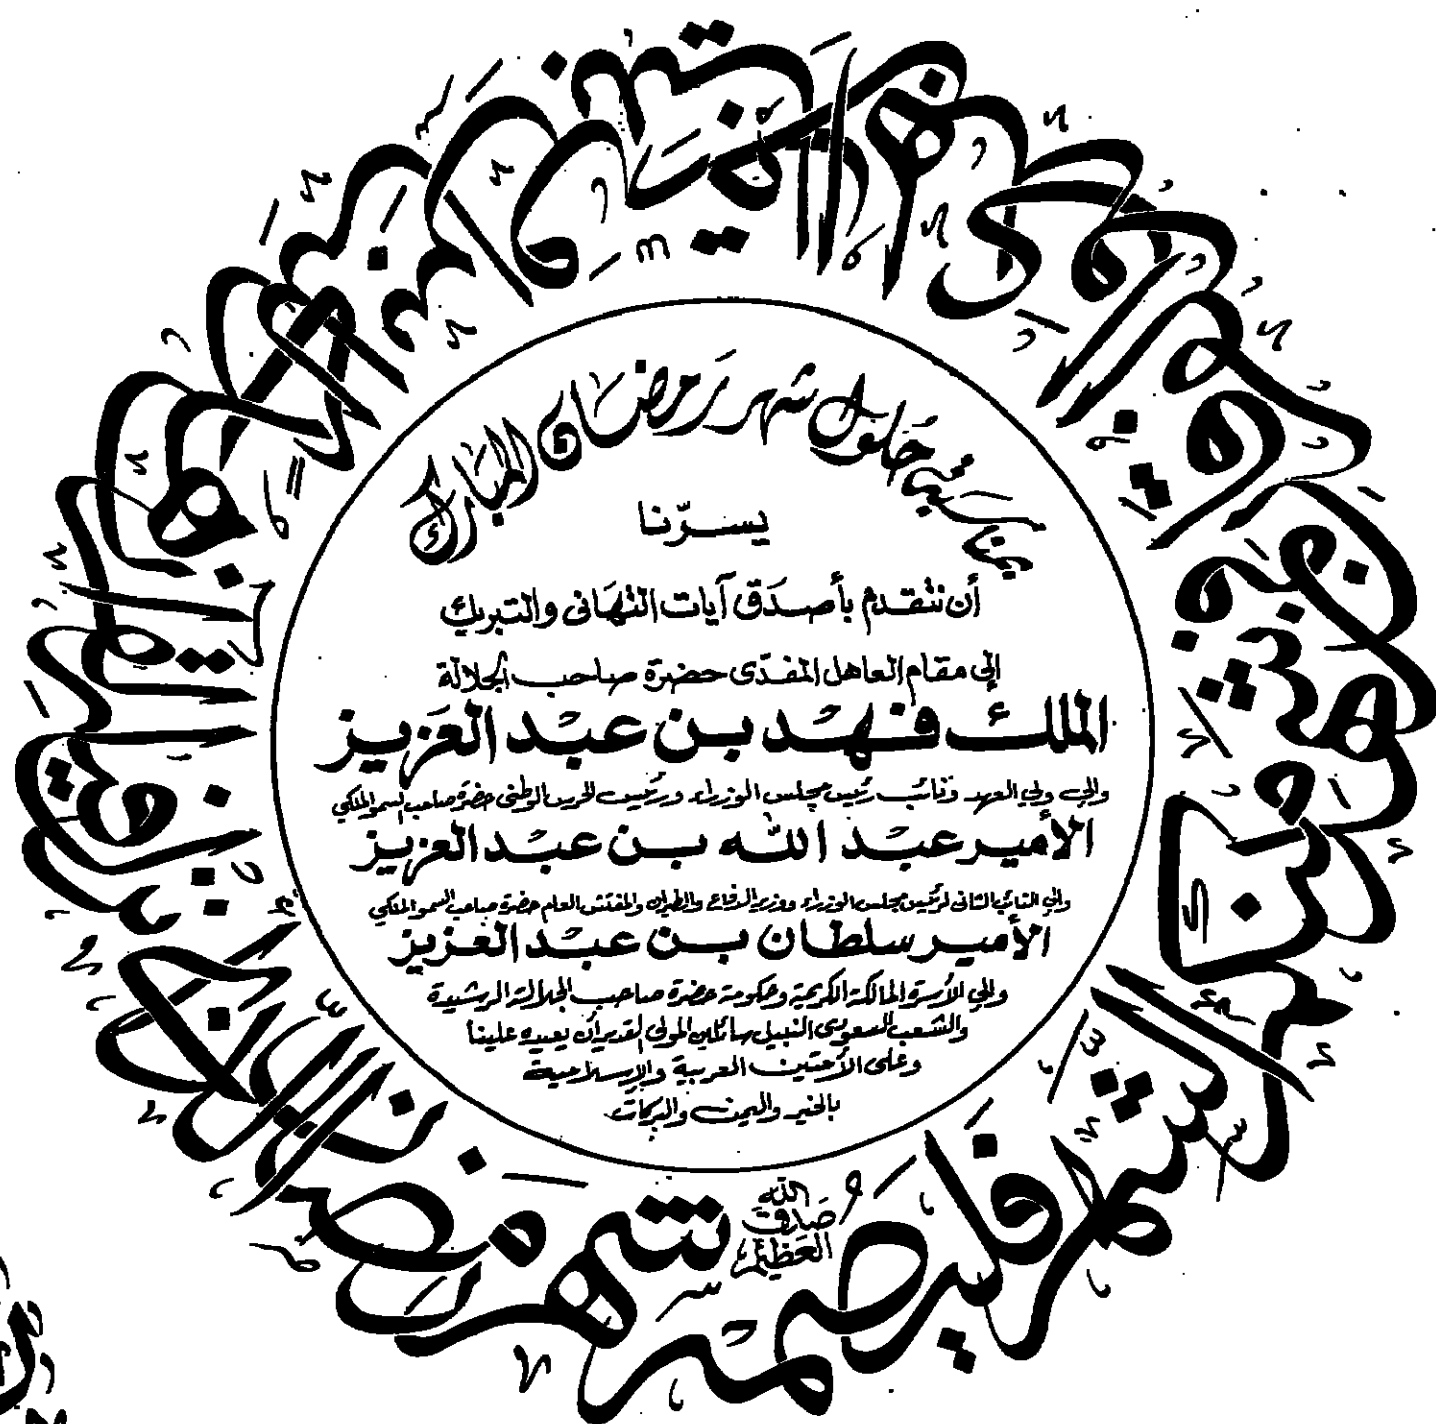 شهر رمضان الذي أنزل فيه القرآن هدى للناس وبينات من الهدى والفرقان فمن شهد منكم الشهر فليصمه
صدق الله العظيم
بمناسبة حلول شهر رمضان المبارك
يسرّنا
أن نتقدم بأصدق آيات التهاني والتبريك
إلى مقام العاهل المفدّى حضرة صاحب الجلالة
الملك فهد بن عبد العزيز
وإلى ولي العهد ونائب رئيس مجلس الوزراء ورئيس الحرس الوطني حضرة صاحب السمو الملكي
الأمير عبد الله بن عبد العزيز
وإلى النائب الثاني لرئيس مجلس الوزراء ووزير الدفاع والطيران والمفتش العام حضرة صاحب السمو الملكي
الأمير سلطان بن عبد العزيز
وإلى الأسرة المالكة الكريمة وحكومة حضرة صاحب الجلالة الرشيدة
والشعب السعودي النبيل سائلين المولى القدير أن يعيده علينا
وعلى الأمتين العربية والإسلامية
بالخير واليمن والبركات